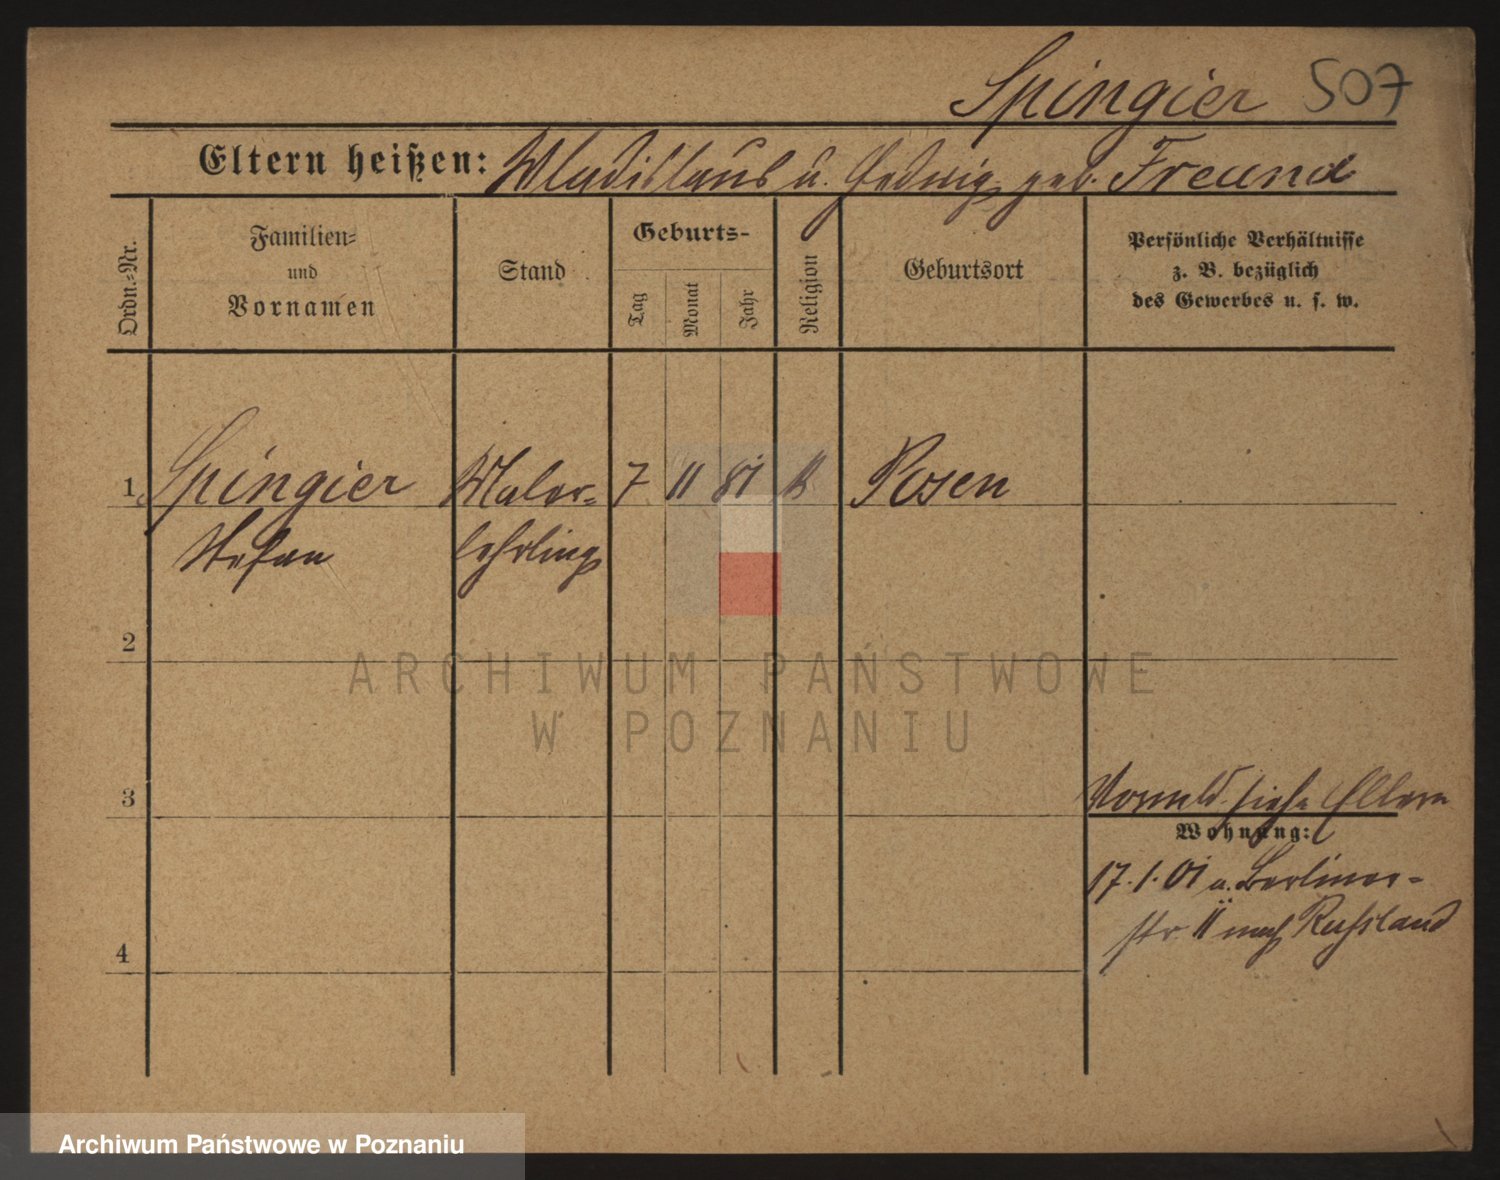 Spingier 507
Eltern heißen: Wladislaus u. Hedwig geb. Freund
Ordn.-Nr.
Familien-
und
Vornamen
Stand
Geburts-
Tag
Monat
Jahr
Religion
Geburtsort
Persönliche Verhältnisse
z. B. bezüglich
des Gewerbes u. s. w.
1 Spingier Maler- 7 11 81 k Posen
Stefan lehrling
2
ARCHIWUM PAŃSTWOWE
W POZNANIU
3
siehe Eltern
Wohnung:
17.1.01 a. Berliner-
str. 11 nach Russland
4
Archiwum Państwowe w Poznaniu